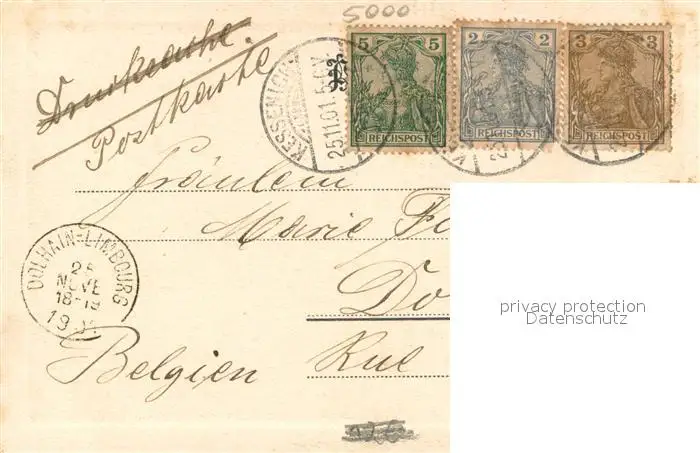 5000
Drucksache.
Postkarte
5 5
REICHSPOST
2 2
REICHSPOST
3 3
REICHSPOST
KESSENICH
25.11.01. 5-6 V
Fräulein
Marie
DOLHAIN-LIMBOURG
25
NOVE
18-19
19
Do
privacy protection
Datenschutz
Belgien
Rue